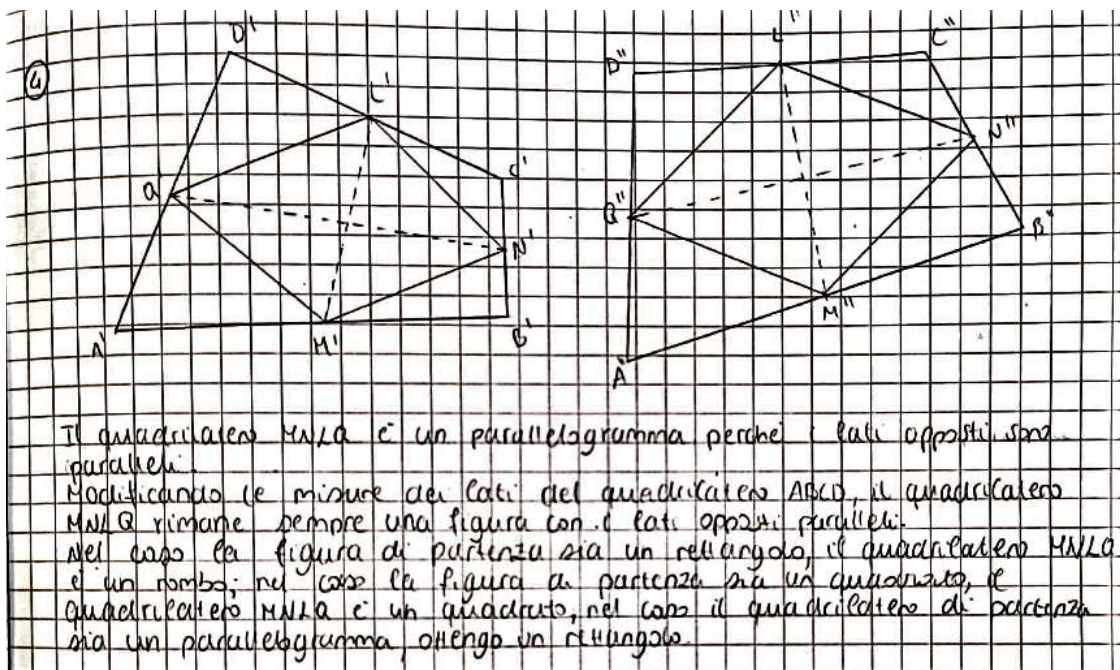 ④
D'
L'
C'
Q'
N'
A'
M'
B'
L"
D"
C"
N"
Q"
B"
M"
A"
Il quadrilatero MNLQ è un parallelogramma perché i lati opposti sono
paralleli.
Modificando le misure dei lati del quadrilatero ABCD, il quadrilatero
MNLQ rimane sempre una figura con i lati opposti paralleli.
Nel caso la figura di partenza sia un rettangolo, il quadrilatero MNLQ
è un rombo; nel caso la figura di partenza sia un quadrato, il
quadrilatero MNLQ è un quadrato, nel caso il quadrilatero di partenza
sia un parallelogramma, ottengo un rettangolo.